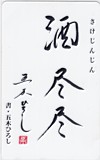 さけじんじん
酒尽尽
五木ひろし
書・五木ひろし